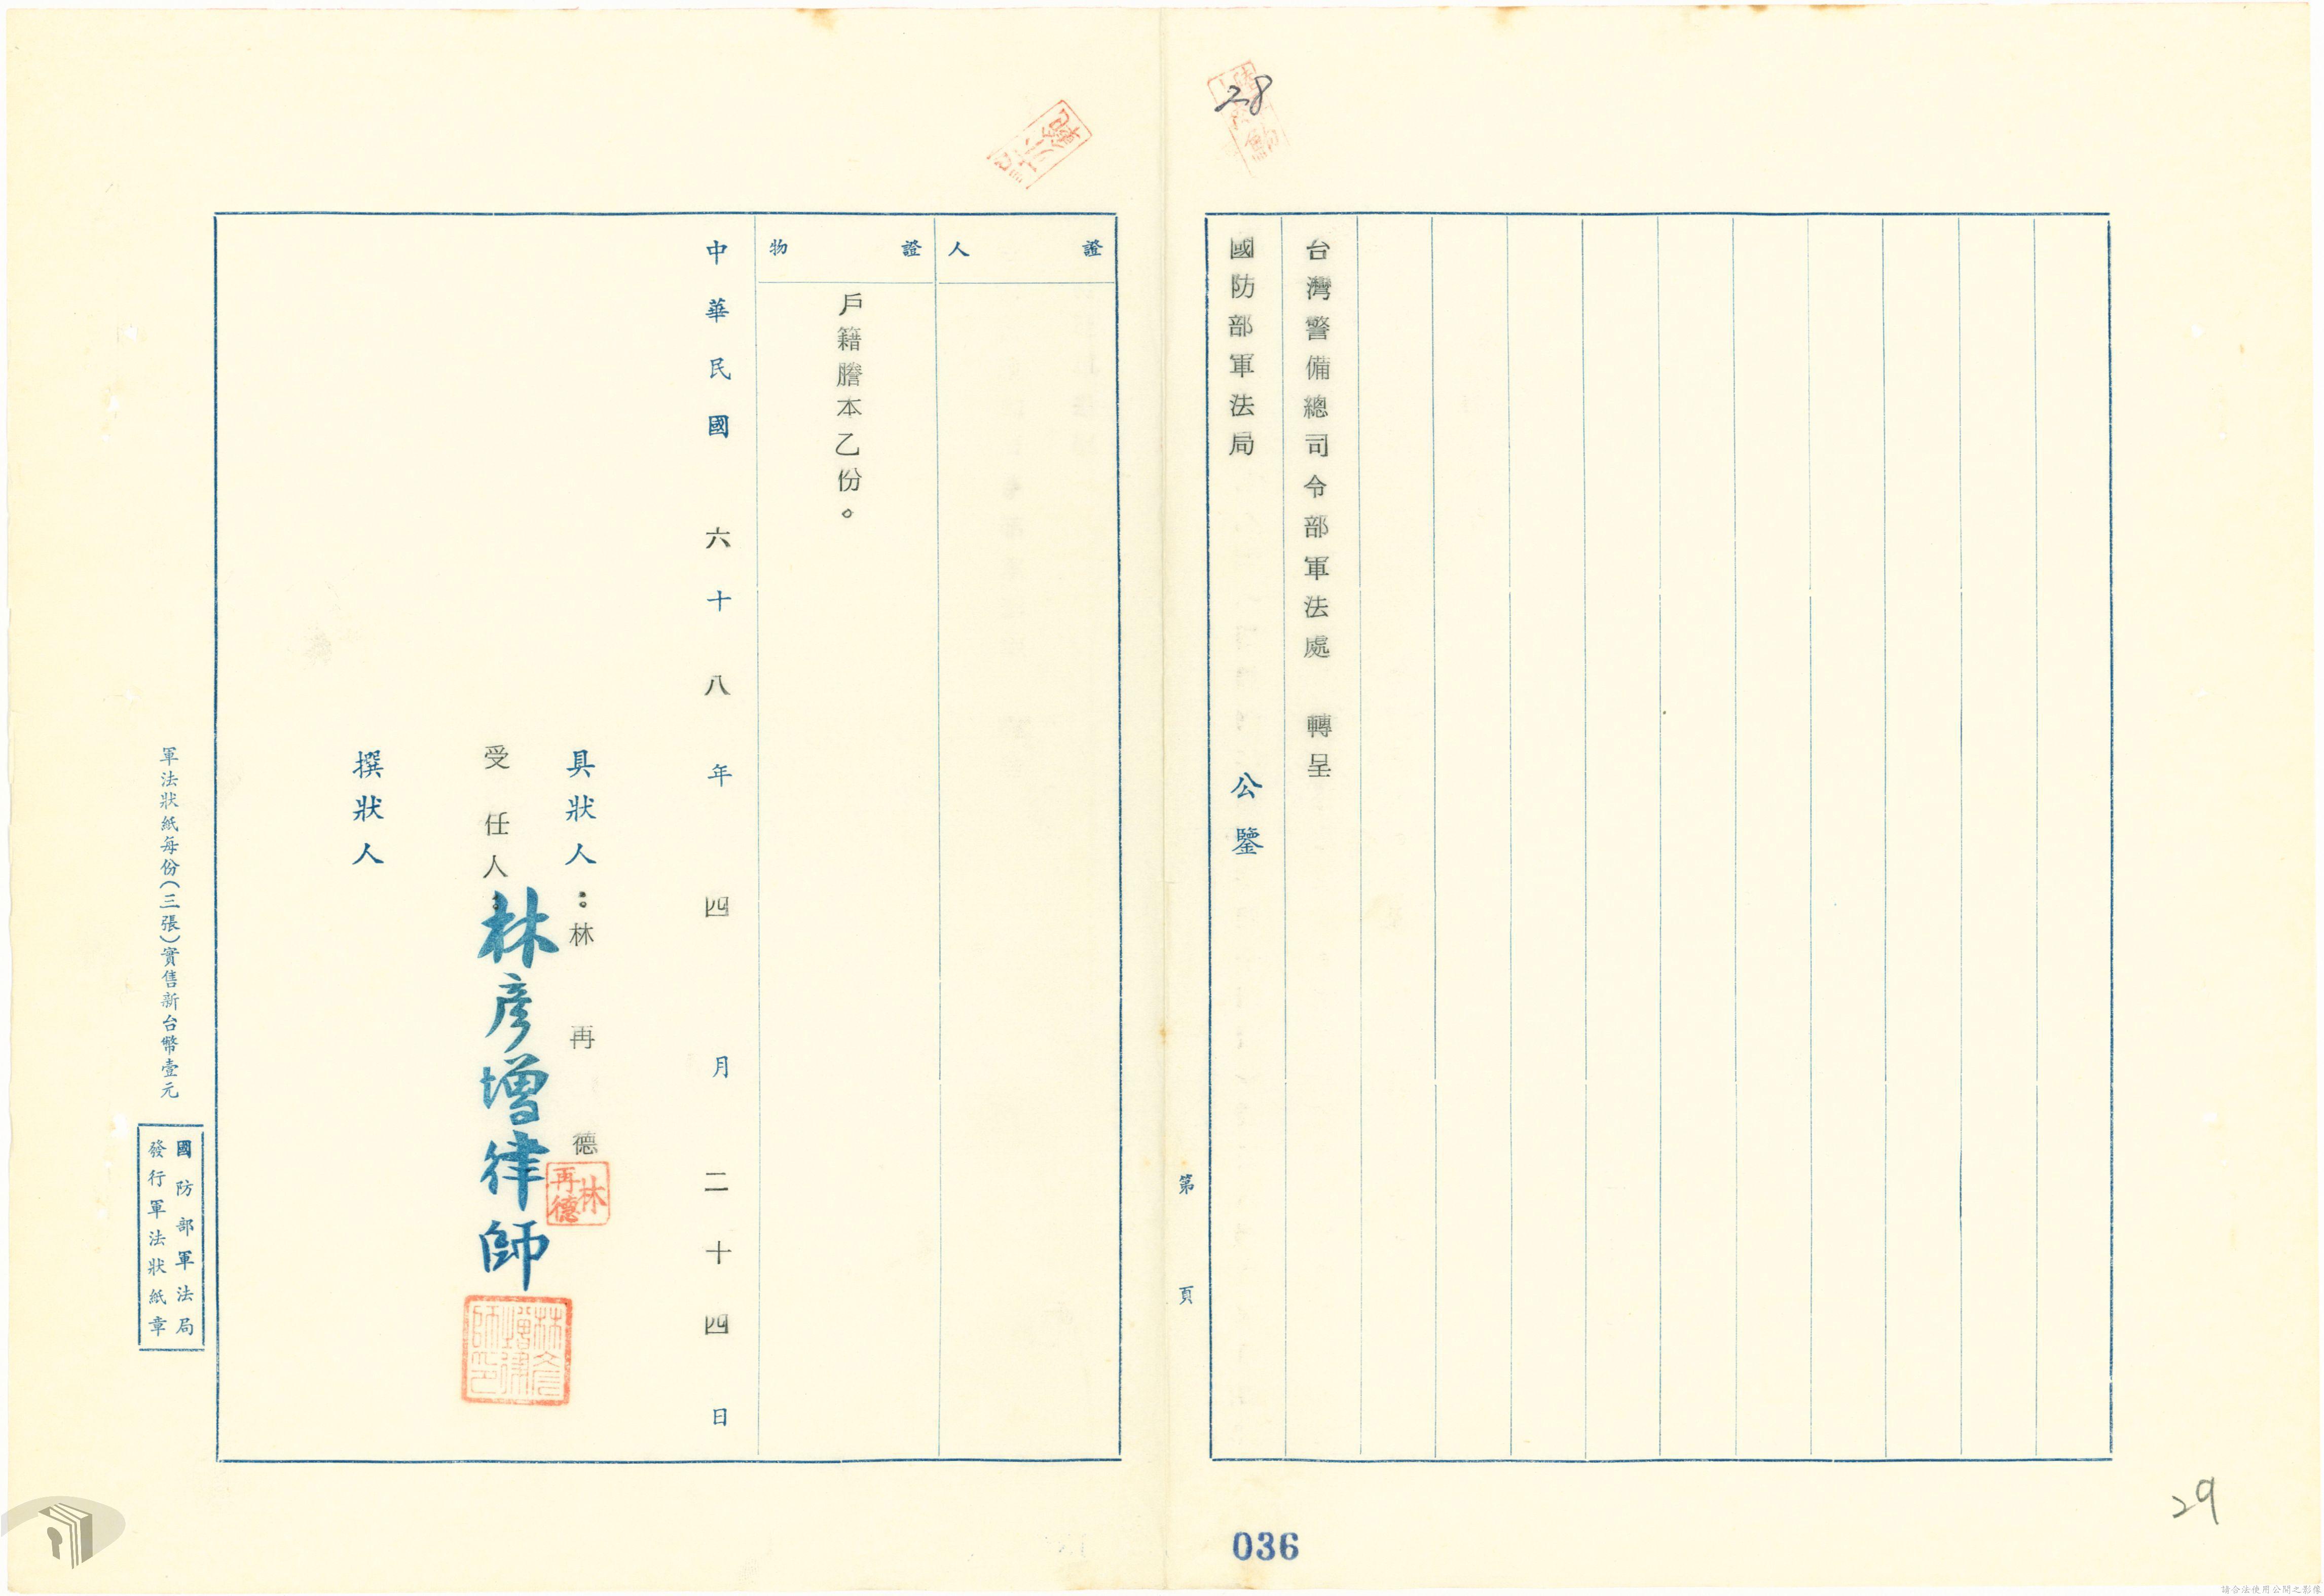 28
台灣警備總司令部軍法處　轉呈
國防部軍法局　公鑒
第　頁
證人
證物
戶籍謄本乙份。
中華民國　六十八年　四月　二十四日
具狀人：林再德
林再德
受任人：林彥增律師
林彥增律師印
撰狀人
軍法狀紙每份（三張）實售新台幣壹元
國防部軍法局
發行軍法狀紙章
036
29
請合法使用公開之影像